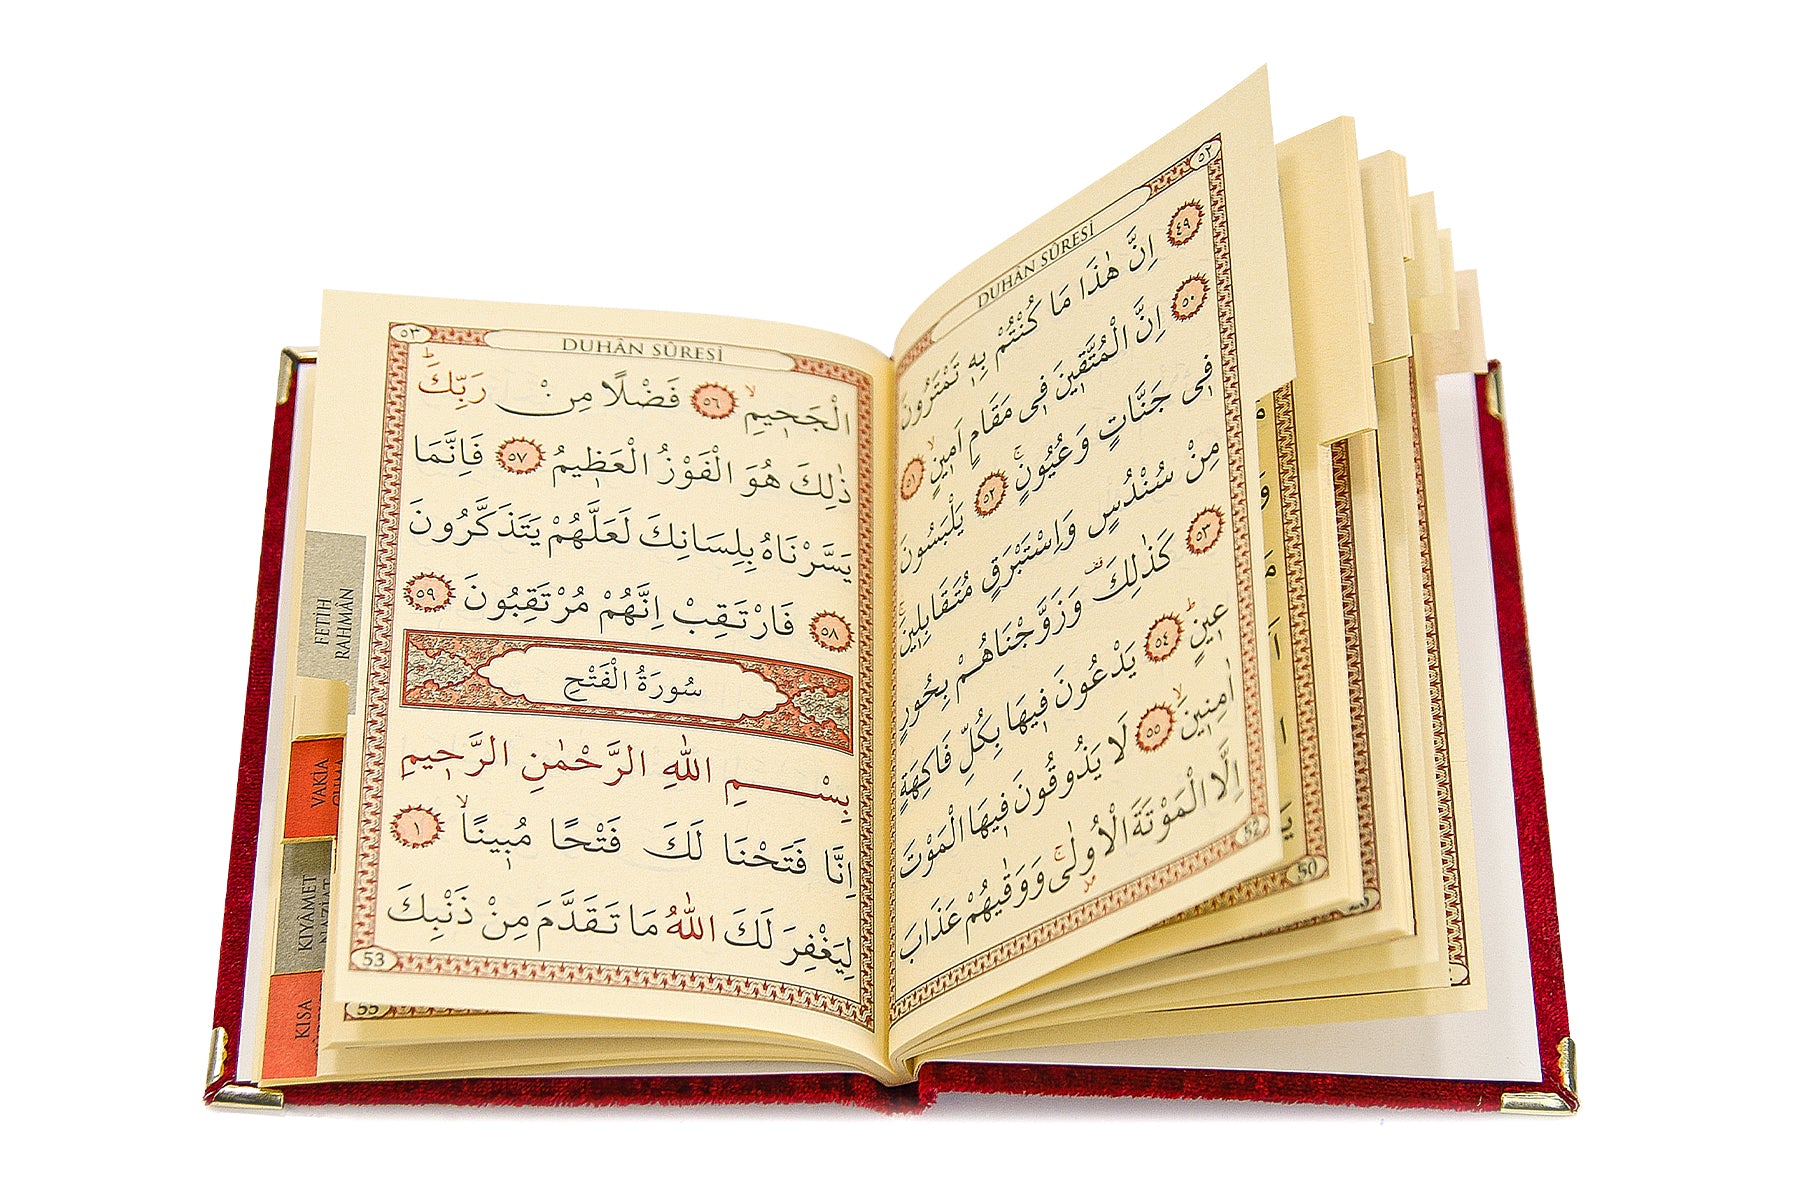 ٥٢
DUHÂN SÛRESİ
٤٩ اِنَّ هٰذَا مَا كُنْتُمْ بِهٖ تَمْتَرُونَ
٥٠ اِنَّ الْمُتَّقٖينَ فٖى مَقَامٍ اَمٖينٍۙ ٥١
فٖى جَنَّاتٍ وَعُيُونٍۚ ٥٢ يَلْبَسُونَ
مِنْ سُنْدُسٍ وَاِسْتَبْرَقٍ مُتَقَابِلٖينَۚ
٥٣ كَذٰلِكَ وَزَوَّجْنَاهُمْ بِحُورٍ
عٖينٍۜ ٥٤ يَدْعُونَ فٖيهَا بِكُلِّ فَاكِهَةٍ
اٰمِنٖينَۙ ٥٥ لَا يَذُوقُونَ فٖيهَا الْمَوْتَ
اِلَّا الْمَوْتَةَ الْاُولٰىۚ وَوَقٰيهُمْ عَذَابَ
52
٥٣
DUHÂN SÛRESİ
الْجَحٖيمِۙ ٥٦ فَضْلًا مِنْ رَبِّكَۜ
ذٰلِكَ هُوَ الْفَوْزُ الْعَظٖيمُ ٥٧ فَاِنَّمَا
يَسَّرْنَاهُ بِلِسَانِكَ لَعَلَّهُمْ يَتَذَكَّرُونَ
٥٨ فَارْتَقِبْ اِنَّهُمْ مُرْتَقِبُونَ ٥٩
سُورَةُ الْفَتْحِ
بِسْمِ اللّٰهِ الرَّحْمٰنِ الرَّحٖيمِ
اِنَّا فَتَحْنَا لَكَ فَتْحًا مُبٖينًاۙ ١
لِيَغْفِرَ لَكَ اللّٰهُ مَا تَقَدَّمَ مِنْ ذَنْبِكَ
53
55
50
FETİH
RAHMÂN
VAKİA
KIYÂMET
KISA